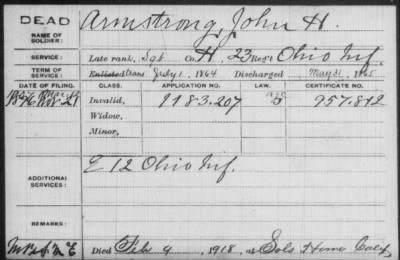 DEAD
Armstrong, John H.
NAME OF SOLDIER:
SERVICE: Late rank, Sgt Co. H, 23 Reg't Ohio Inf.
TERM OF SERVICE: Enlisted trans July 1, 1864 Discharged May 31, 1865
DATE OF FILING. CLASS. APPLICATION NO. LAW. CERTIFICATE NO.
1896 Nov. 21 Invalid, 1183.207 957.812
Widow,
Minor,
ADDITIONAL SERVICES: E 12 Ohio Inf.
REMARKS:
Died Feb 9, 1918, at Sols Home Calif